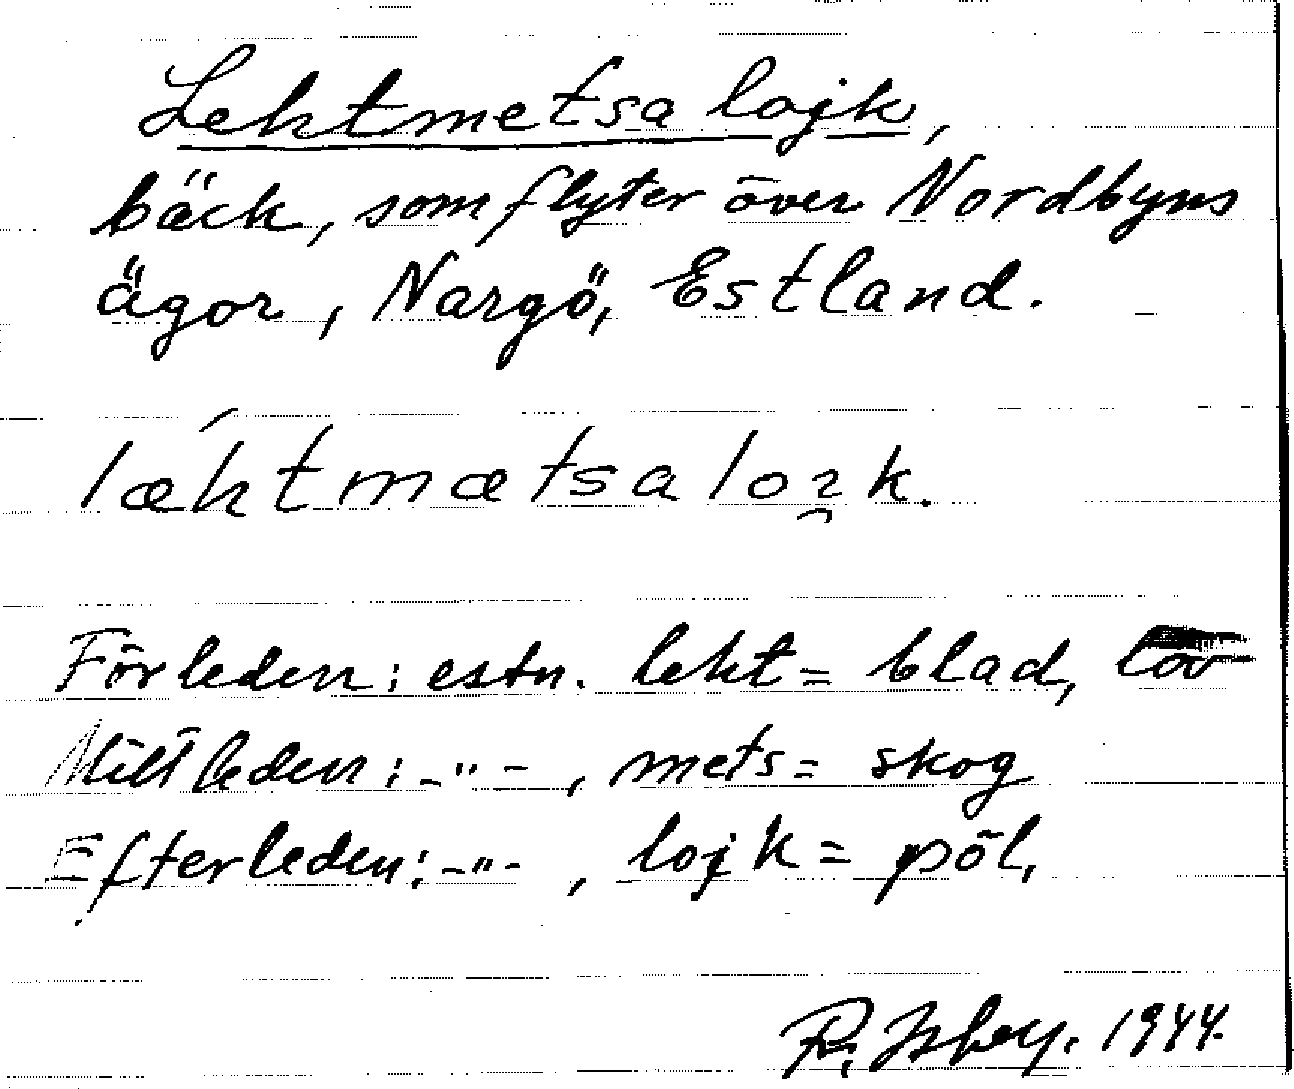 Lehtmetsa lojk,
bäck, som flyter över Nordbyns
ägor, Nargö, Estland.
læhtmætsaloı̯k.
Förleden: estn. leht = blad, löv
Mittleden: -"- , mets = skog
Efterleden: -"- , lojk = pöl,
1944.